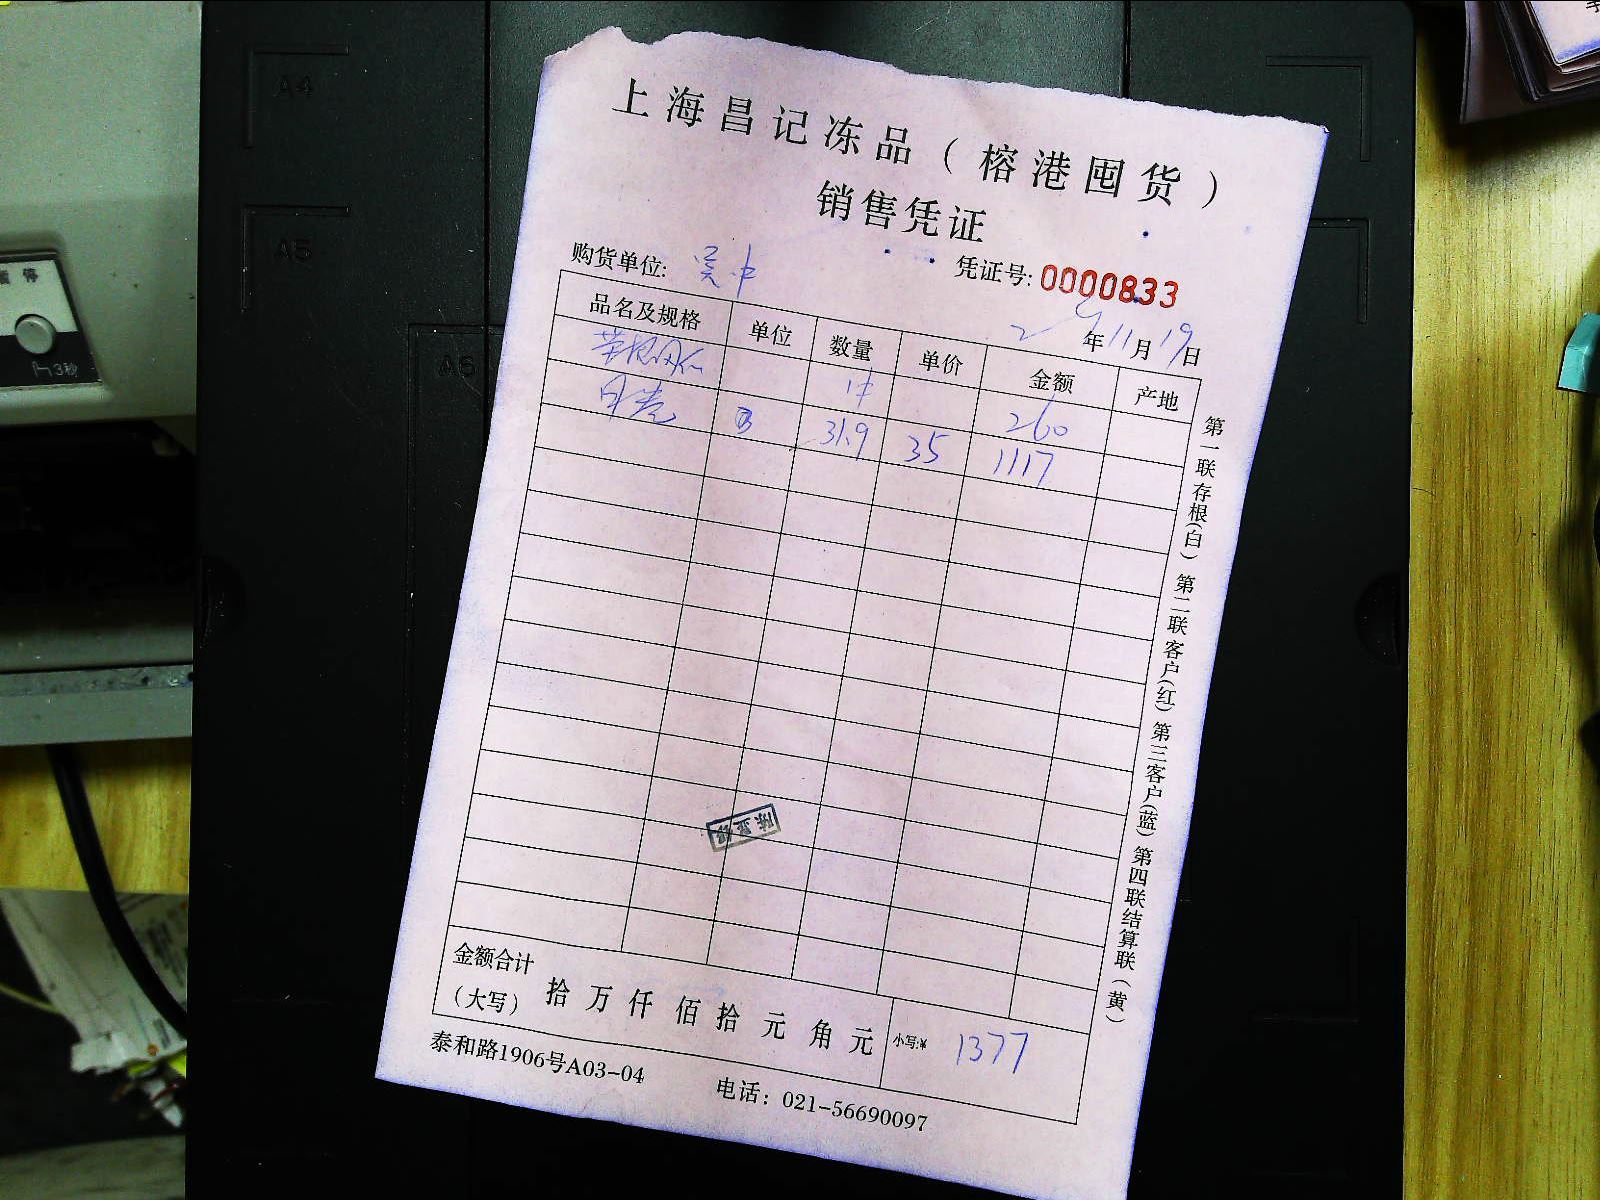 上海昌记冻品（榕港囤货）
销售凭证
购货单位: 吴中
凭证号: 0000833
年11月19日
品名及规格 单位 数量 单价 金额 产地
1件 260
31.9 35 1117
金额合计
（大写） 拾 万 仟 佰 拾 元 角 元 小写:¥ 1377
泰和路1906号A03-04 电话：021-56690097
第一联存根(白) 第二联客户(红) 第三客户(蓝) 第四联结算联(黄)
A4
A5
A6
停
3秒